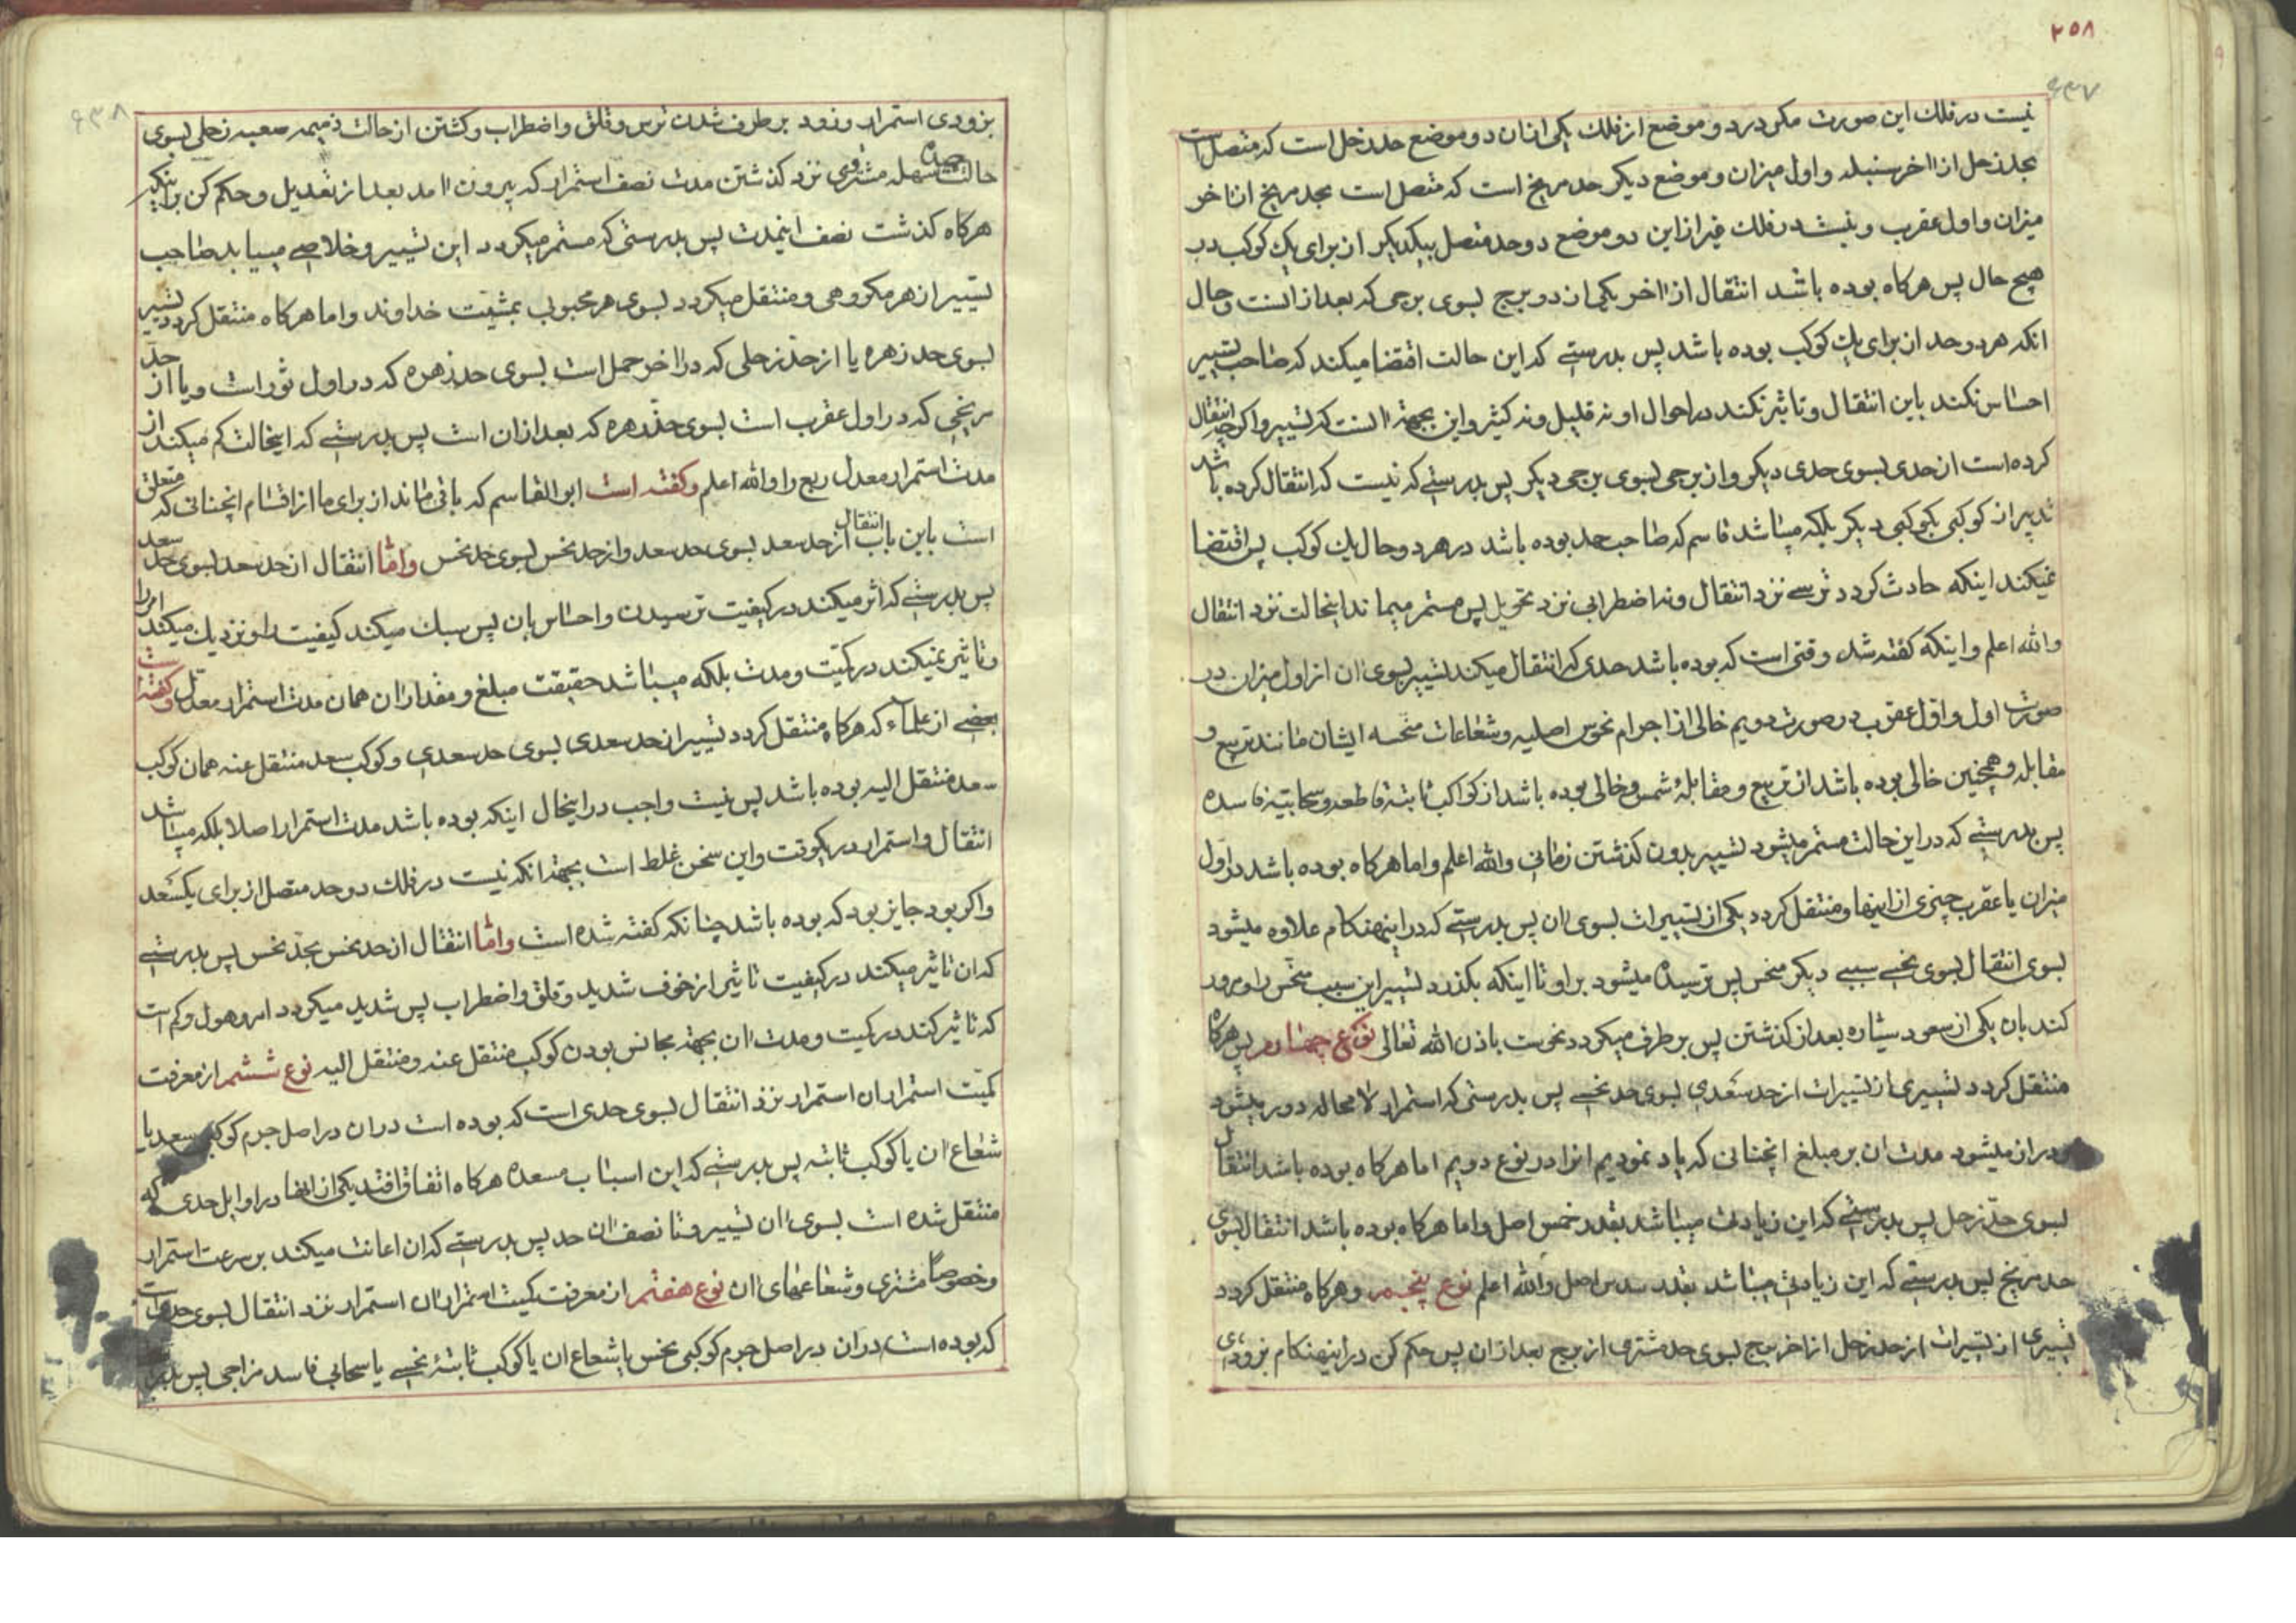 ۲۵۸
۶۳۷
نیست در فلك این صورت مکر در دو موضع از فلك یکی از ان دو موضع حد زحل است که متصل است
بحد زحل از اخر سنبله و اول میزان و موضع دیکر حد مریخ است که متصل است بحد مریخ از اخر
میزان و اول عقرب و نیست در فلك غیر از این دو موضع دو حد متصل بیکدیکر از برای یك کوکب در
هیچ حال پس هرکاه بوده باشد انتقال از اخر یکی از دو برج بسوی برجی که بعد از انست و حال
انکه هر دو حد از برای یك کوکب بوده باشد پس بدرستی که این حالت اقتضا میکند که صاحب تسییر
احساس نکند باین انتقال و تاثیر نکند در احوال او نه قلیل و نه کثیر و این بجهة انست که تسییر و اکرچه انتقال
کرده است از حدی بسوی حدی دیکر و از برجی بسوی برجی دیکر پس بدرستی که نیست که انتقال کرده باشد
تدبیر از کوکبی بکوکبی دیکر بلکه میباشد قاسم که صاحب حد بوده باشد در هر دو حال یك کوکب پس اقتضا
نمیکند اینکه حادث کردد ترسی نزد انتقال و نه اضطرابی نزد تحویل پس مستمر میماند اینحالت نزد انتقال
والله اعلم و اینکه کفته شد وقتی است که بوده باشد حدی که انتقال میکند تسییر بسوی ان از اول میزان در
صورت اول و اول عقرب در صورت دویم خالی از اجرام نحوس اصلیه و شعاعات منحسه ایشان مانند تربیع و
مقابله و همچنین خالی بوده باشد از تربیع و مقابلهٔ شمس و خالی بوده باشد از کواکب ثابتهٔ قاطعه و سحابیّهٔ فاسده
پس بدرستی که در این حالت مستمر میشود تسییر بدون کذشتن زمانی والله اعلم و اما هرکاه بوده باشد در اول
میزان یا عقرب چیزی از اینها و منتقل کردد یکی از تسییرات بسوی ان پس بدرستی که در اینهنکام علاوه میشود
بسوی انتقال بسوی نحسی سببی دیکر منحس پس ترسیده میشود بر او تا اینکه بکذرد تسییر این سبب منحس را و مرور
کند بان یکی از سعود سیّاره بعد از کذشتن پس بر طرف میکردد نحوست باذن الله تعالی نوع چهارم پس هرکاه
منتقل کردد تسییری از تسییرات از حد سعدی بسوی حد نحسی پس بدرستی که استمرار لا محاله دور میشود
و دراز میشود مدت ان بر مبلغ انچنانی که یاد نمودیم انرا در نوع دویم اما هرکاه بوده باشد انتقال
بسوی حدّ زحل پس بدرستی که این زیادت میباشد بقدر خمس اصل و اما هرکاه بوده باشد انتقال بسوی
حد مریخ پس بدرستی که این زیادتی میباشد بقدر سدس اصل والله اعلم نوع پنجم و هرکاه منتقل کردد
تسییری از تسییرات از حد زحل از اخر برج بسوی حد مشتری از برج بعد از ان پس حکم کن در اینهنکام بزودی
۶۳۸
بزودی استمرار و زود بر طرف شدن ترس و قلق و اضطراب و کشتن از حالت ذمیمه صعبه زحلی بسوی
حالت سهله مشتروی نزد کذشتن مدت نصف استمرار که بیرون امد بعد از تعدیل و حکم کن باینکه
هرکاه کذشت نصف اینمدت پس بدرستی که مستمر میکردد این تسییر و خلاصی مییابد صاحب
تسییر از هر مکروهی و منتقل میکردد بسوی هر محبوبی بمشیّت خداوند و اما هرکاه منتقل کردد تسییر
بسوی حد زهره یا از حدّ زحلی که در اخر حمل است بسوی حد زهره که در اول ثور است و یا از حدّ
مریخی که در اول عقرب است بسوی حدّ زهره که بعد از ان است پس بدرستی که اینحالت کم میکند از
مدت استمرار معدل ربع را والله اعلم و کفته است ابو القاسم که باقی ماند از برای ما از اقسام انچنانی که متعلق
است باین باب انتقال از حد سعد بسوی حد سعد و از حد نحس بسوی حد نحس و امّا انتقال از حد سعد بسوی حد سعد
پس بدرستی که اثر میکند در کیفیت ترسیدن و احساس بان پس سبك میکند کیفیت را و نزدیك میکند امر را
و تاثیر نمیکند در کمّیت و مدت بلکه میباشد حقیقت مبلغ و مقدار ان همان مدت استمرار معدّل و کفته است
بعضی از علماء که هرکاه منتقل کردد تسییر از حد سعدی بسوی حد سعدی و کوکب سعد منتقل عنه همان کوکب
سعد منتقل الیه بوده باشد پس نیست واجب در اینحال اینکه بوده باشد مدت استمرار اصلا بلکه میباشد
انتقال و استمرار در یکوقت و این سخن غلط است بجهة انکه نیست در فلك دو حد متصل از برای یکسعد
و اکر بود جایز بود که بوده باشد چنانکه کفته شده است و امّا انتقال از حد نحس بحدّ نحس پس بدرستی
که ان تاثیر میکند در کیفیت تاثیر از خوف شدید و قلق و اضطراب پس شدید میکردد امر و هول و کم است
که تاثیر کند در کمیت و مدت ان بجهة مجانس بودن کوکب منتقل عنه و منتقل الیه نوع ششم از معرفت
کمّیت استمرار ان استمرار نزد انتقال بسوی حدی است که بوده است در ان در اصل جرم کوکبی سعد یا
شعاع ان یا کوکب ثابته پس بدرستی که این اسباب مسعده هرکاه اتفاق افتد یکی از انها در اوایل حدی که
منتقل شده است بسوی ان تسییر و تا نصف ان حد پس بدرستی که ان اعانت میکند بر سرعت استمرار
و خصوصاً مشتری و شعاعهای ان نوع هفتم از معرفت کمیت استمرار ان استمرار نزد انتقال بسوی حدی است
که بوده است در ان در اصل جرم کوکبی نحس یا شعاع ان یا کوکب ثابتهٔ نحسی یا سحابی فاسد مزاجی پس بدر